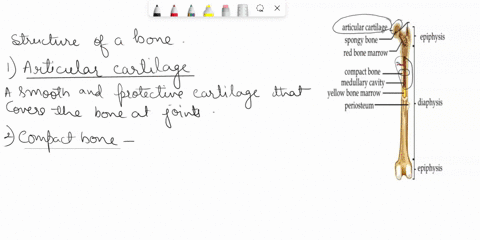 Structure of a bone.
1) Articular cartilage
A smooth and protective cartilage that
Covers the bone at joints.
2) Compact bone –
articular cartilage
spongy bone
red bone marrow
compact bone
medullary cavity
yellow bone marrow
periosteum
epiphysis
diaphysis
epiphysis